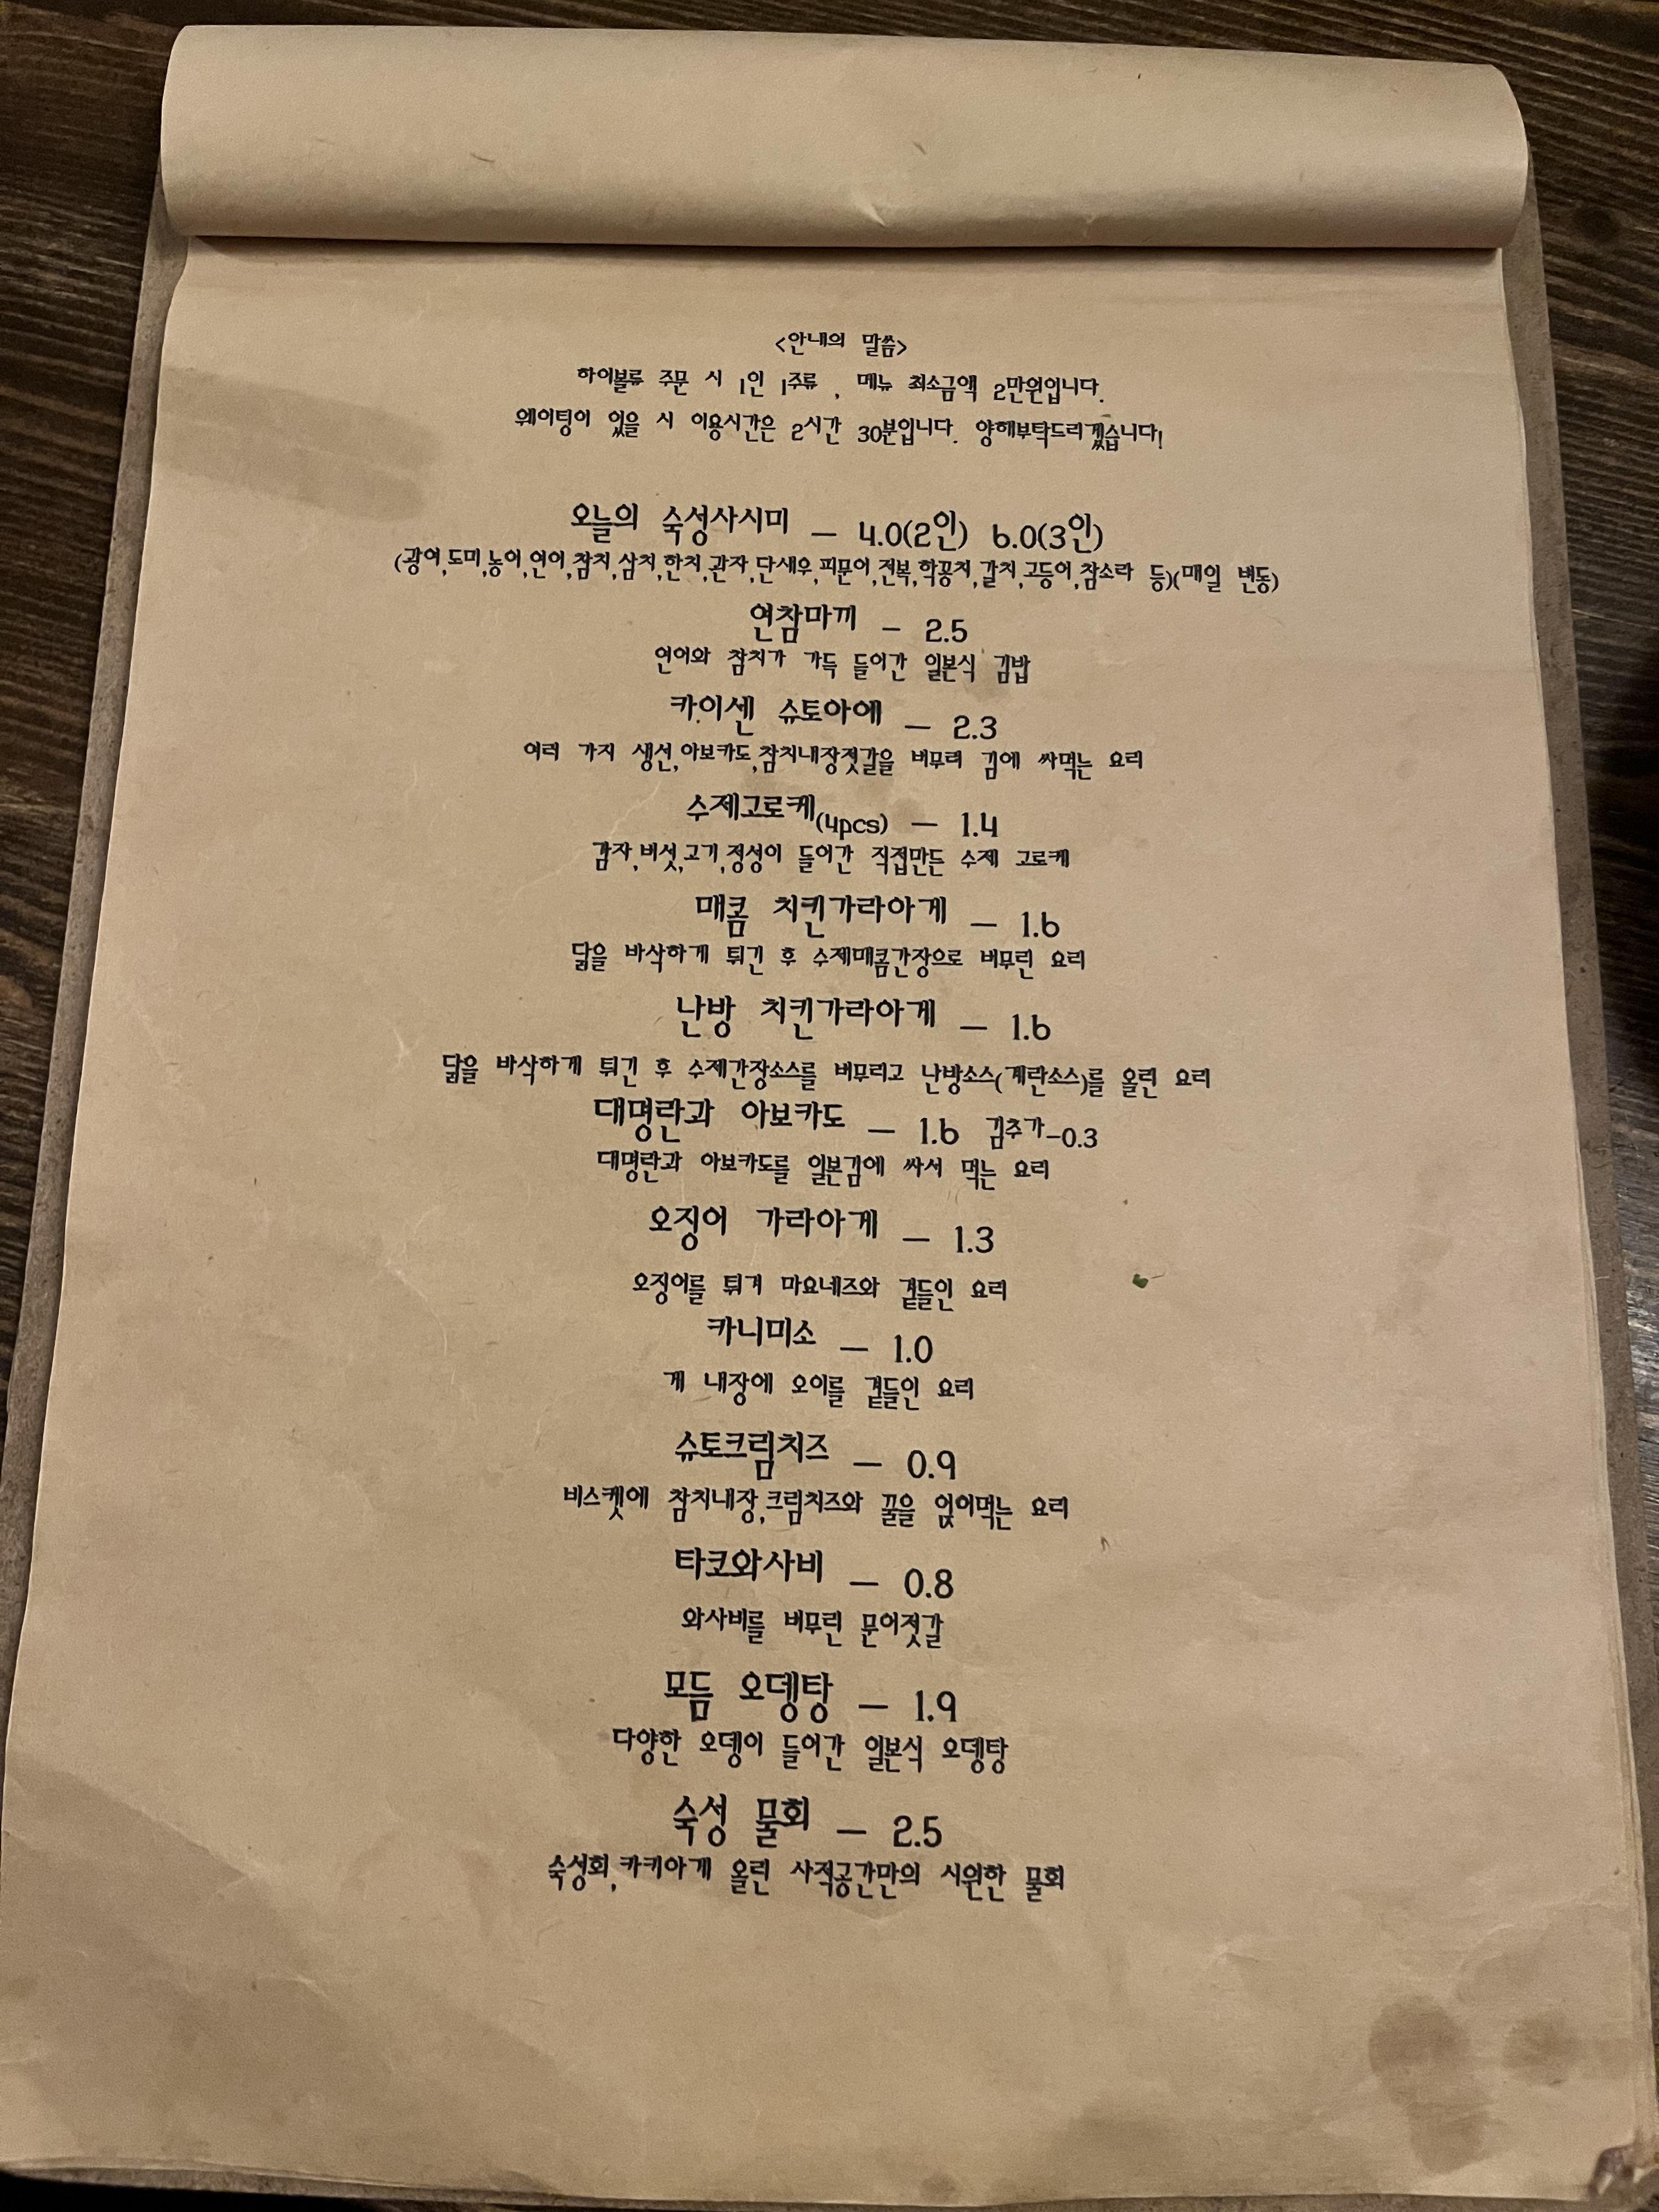 <안내의 말씀>
하이볼류 주문 시 1인 1주류 , 메뉴 최소금액 2만원입니다.
웨이팅이 있을 시 이용시간은 2시간 30분입니다. 양해부탁드리겠습니다!
오늘의 숙성사시미 - 4.0(2인) 6.0(3인)
(광어,도미,농어,연어,참치,삼치,한치,관자,단새우,피문어,전복,학꽁치,갈치,고등어,참소라 등)(매일 변동)
연참마끼 - 2.5
연어와 참치가 가득 들어간 일본식 김밥
카이센 슈토아에 - 2.3
여러 가지 생선,아보카도,참치내장젓갈을 버무려 김에 싸먹는 요리
수제고로케(4pcs) - 1.4
감자,버섯,고기,정성이 들어간 직접만든 수제 고로케
매콤 치킨가라아게 - 1.6
닭을 바삭하게 튀긴 후 수제매콤간장으로 버무린 요리
난방 치킨가라아게 - 1.6
닭을 바삭하게 튀긴 후 수제간장소스를 버무리고 난방소스(계란소스)를 올린 요리
대명란과 아보카도 - 1.6 김추가-0.3
대명란과 아보카도를 일본김에 싸서 먹는 요리
오징어 가라아게 - 1.3
오징어를 튀겨 마요네즈와 곁들인 요리
카니미소 - 1.0
게 내장에 오이를 곁들인 요리
슈토크림치즈 - 0.9
비스켓에 참치내장,크림치즈와 꿀을 얹어먹는 요리
타코와사비 - 0.8
와사비를 버무린 문어젓갈
모듬 오뎅탕 - 1.9
다양한 오뎅이 들어간 일본식 오뎅탕
숙성 물회 - 2.5
숙성회,카키아게 올린 사적공간만의 시원한 물회